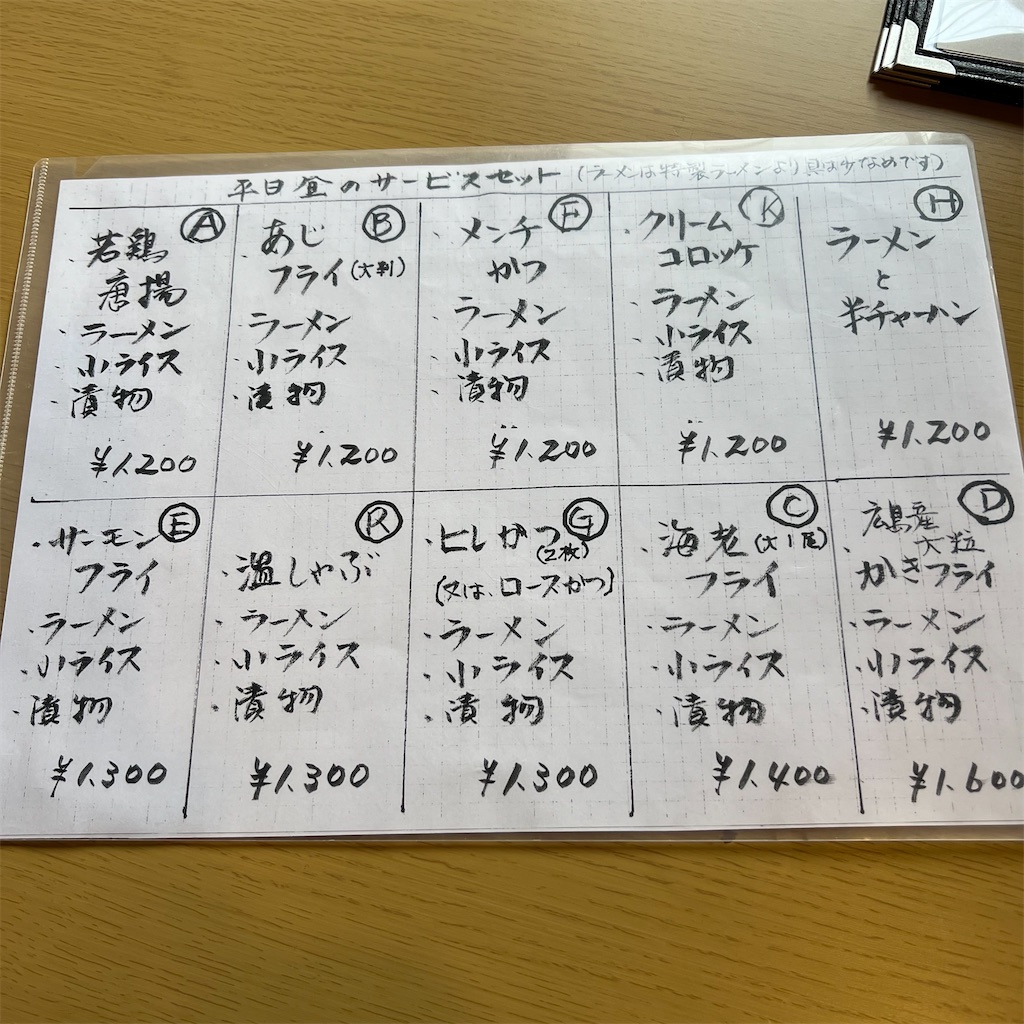 平日昼のサービスセット (ラーメンは特製ラーメンより具は少なめです)
Ⓐ
・若鶏
唐揚
・ラーメン
・小ライス
・漬物
¥1.200
Ⓑ
・あじ
フライ(大判)
・ラーメン
・小ライス
・漬物
¥1.200
Ⓕ
・メンチ
かつ
・ラーメン
・小ライス
・漬物
¥1.200
Ⓚ
・クリーム
コロッケ
・ラーメン
・小ライス
・漬物
¥1.200
Ⓗ
ラーメン
と
半チャーハン
¥1.200
Ⓔ
・サーモン
フライ
・ラーメン
・小ライス
・漬物
¥1.300
Ⓡ
・温しゃぶ
・ラーメン
・小ライス
・漬物
¥1.300
Ⓖ
・ヒレかつ
(2枚)
(又は、ロースかつ)
・ラーメン
・小ライス
・漬物
¥1.300
Ⓒ
・海老(大1尾)
フライ
・ラーメン
・小ライス
・漬物
¥1.400
Ⓓ
広島産
・大粒
かきフライ
・ラーメン
・小ライス
・漬物
¥1.600